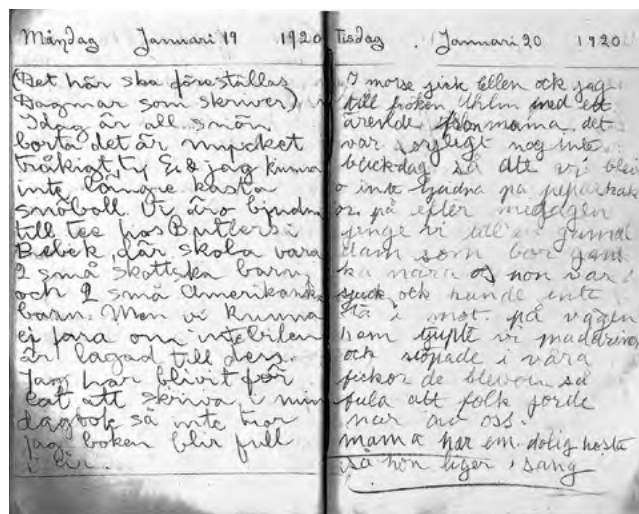 Måndag Januari 19 1920
(Det här ska föreställas
Dagmar som skriver)
Idag är all snön
borta det är mycket
tråkigt ty E. & jag kunna
inte längre kasta
snöboll. Vi äro bjudna
till tee hos Butlers i
Bebek, där skola vara
2 små skottska barn,
och 2 små Amerikanska
barn. Men vi kunna
ej fara om inte bilen
är lagad till dess.
Jag har blivit för
lat att skriva i min
dagbok så inte tror
jag boken blir full
i år.
Tisdag Januari 20 1920
I morse gick Ellen ock jag
till fröken Uhlin med ett
ärende från mama, det
var sorgligt nog inte
backdag så att vi blev
o inte bjudna på pepparkak
or. på efter midagen
finge vi till en gamal
dam som bor gans
ka nära os hon var
sjuck ock kunde inte
ta i mot. på vägen
hem vi madarine
ock stopade i våra
fickor de blevo så
fula att folk jorde
nar av oss.
mama har em dolig hosta
så hon liger i sang